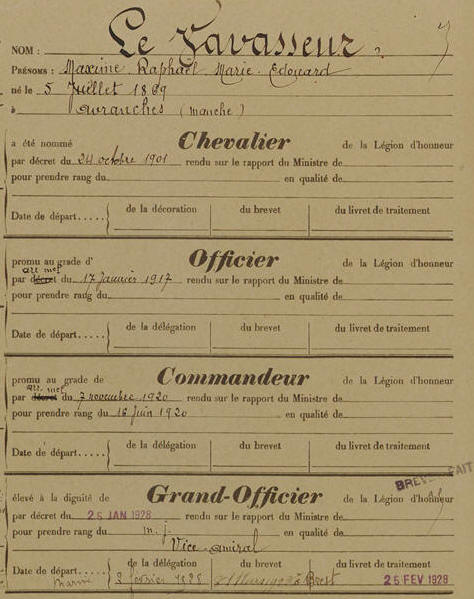 NOM : Le Vavasseur
PRÉNOMS : Maxime Raphaël Marie Edouard
né le 5 Juillet 1869
à Avranches (Manche)
a été nommé Chevalier de la Légion d'honneur
par décret du 24 octobre 1901 rendu sur le rapport du Ministre de
pour prendre rang du en qualité de
Date de départ..... de la décoration du brevet du livret de traitement
promu au grade d' Officier de la Légion d'honneur
arr mel
par décret du 17 Janvier 1917 rendu sur le rapport du Ministre de
pour prendre rang du en qualité de
Date de départ..... de la délégation du brevet du livret de traitement
promu au grade de Commandeur de la Légion d'honneur
arr mel
par décret du 7 novembre 1920 rendu sur le rapport du Ministre de
pour prendre rang du 16 Juin 1920 en qualité de
Date de départ..... de la délégation du brevet du livret de traitement
BREVET FAIT
élevé à la dignité de Grand-Officier de la Légion d'honneur
par décret du 25 JAN 1928 rendu sur le rapport du Ministre de
pour prendre rang du m. j. en qualité de
Vice-amiral
Date de départ..... de la délégation du brevet du livret de traitement
Marine février 1928 Brest 25 FEV 1928